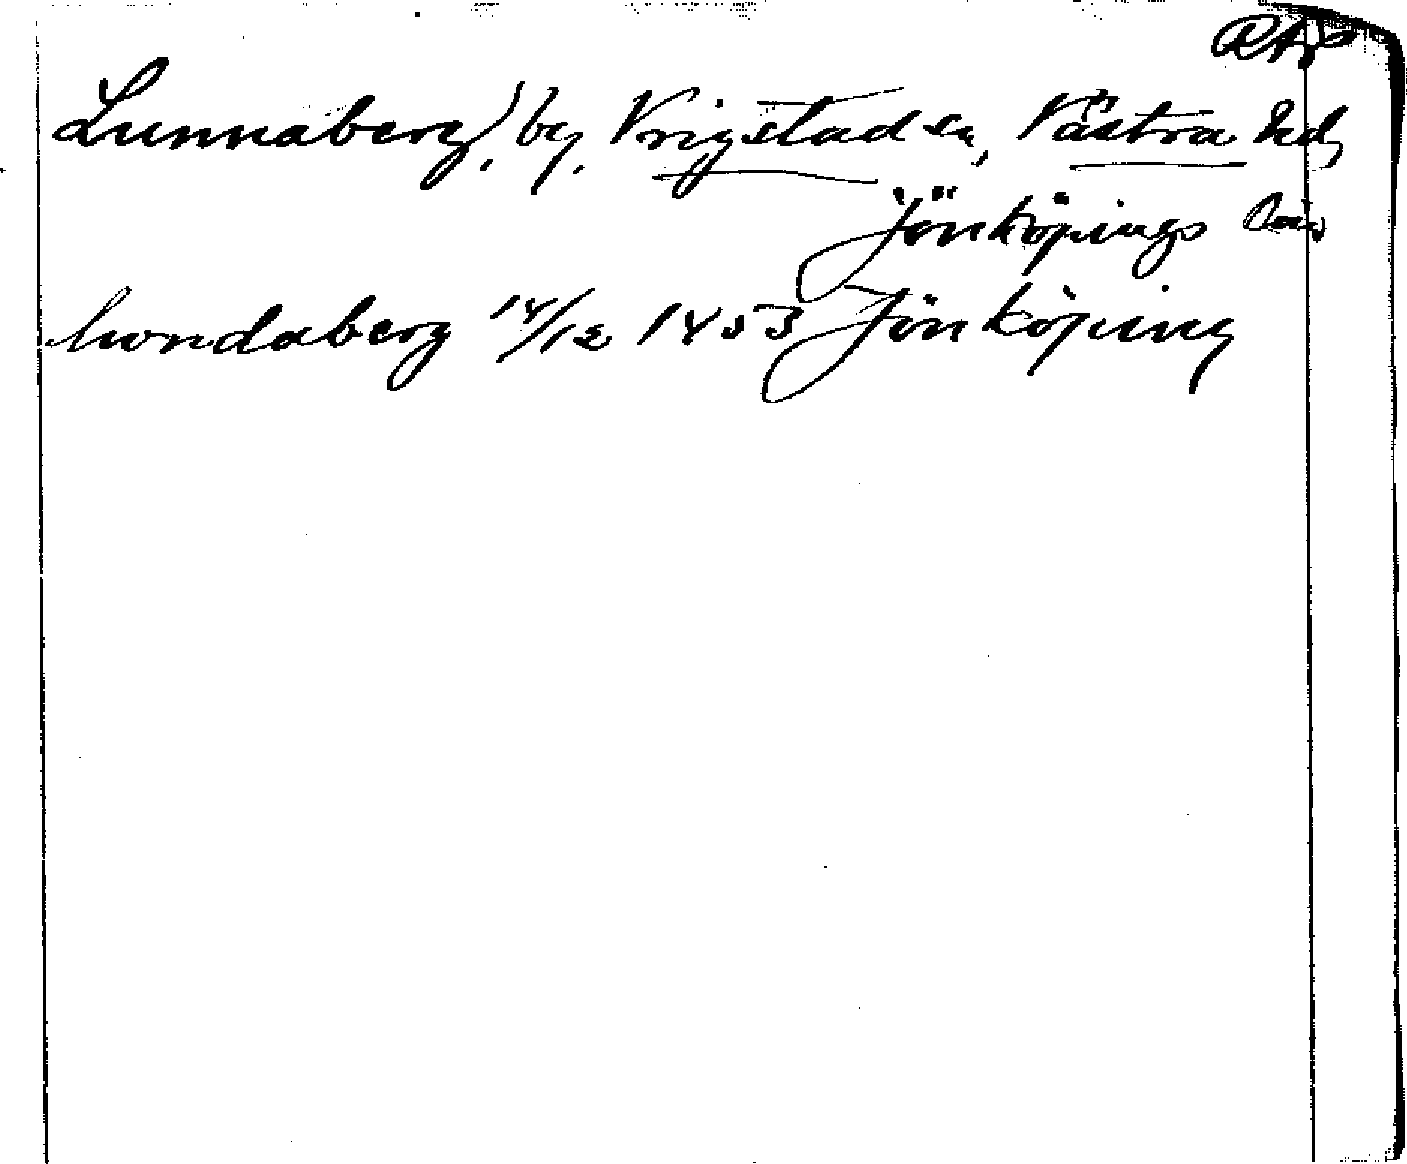 Lunnaberg, by, Vrigstad sn, Västra hd,
Jönköpings län
Lundaberg 14/12 1453 Jönköping